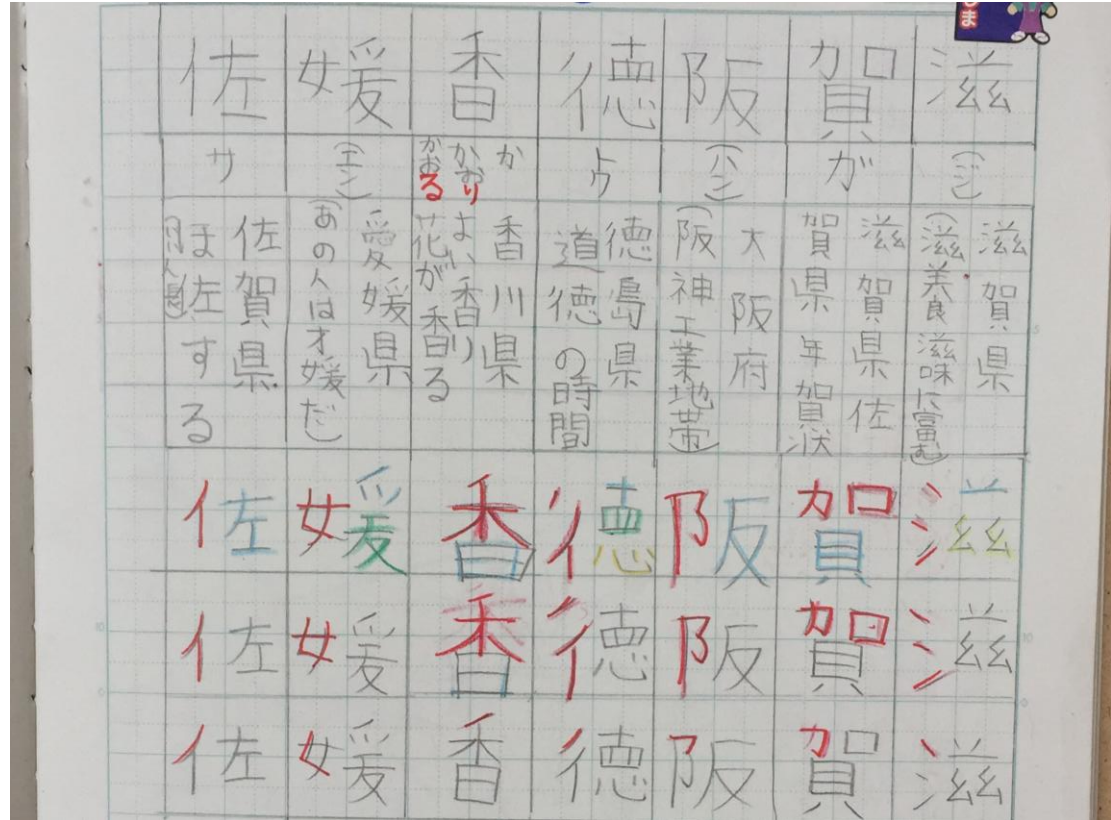 しま
滋
(ジ)
滋賀県
(滋養食 滋味に富む)
滋
滋
滋
賀
ガ
滋賀県 佐
賀県 年賀状
賀
賀
賀
阪
(ハン)
大阪府
(阪神工業地帯)
阪
阪
阪
徳
トク
徳島県
道徳の時間
徳
徳
徳
香
か
かおり
かおる
香川県
よい香り
花が香る
香
香
香
媛
(エン)
愛媛県
(あの人は才媛だ)
媛
媛
媛
佐
サ
佐賀県
ほ佐する
佐
佐
佐